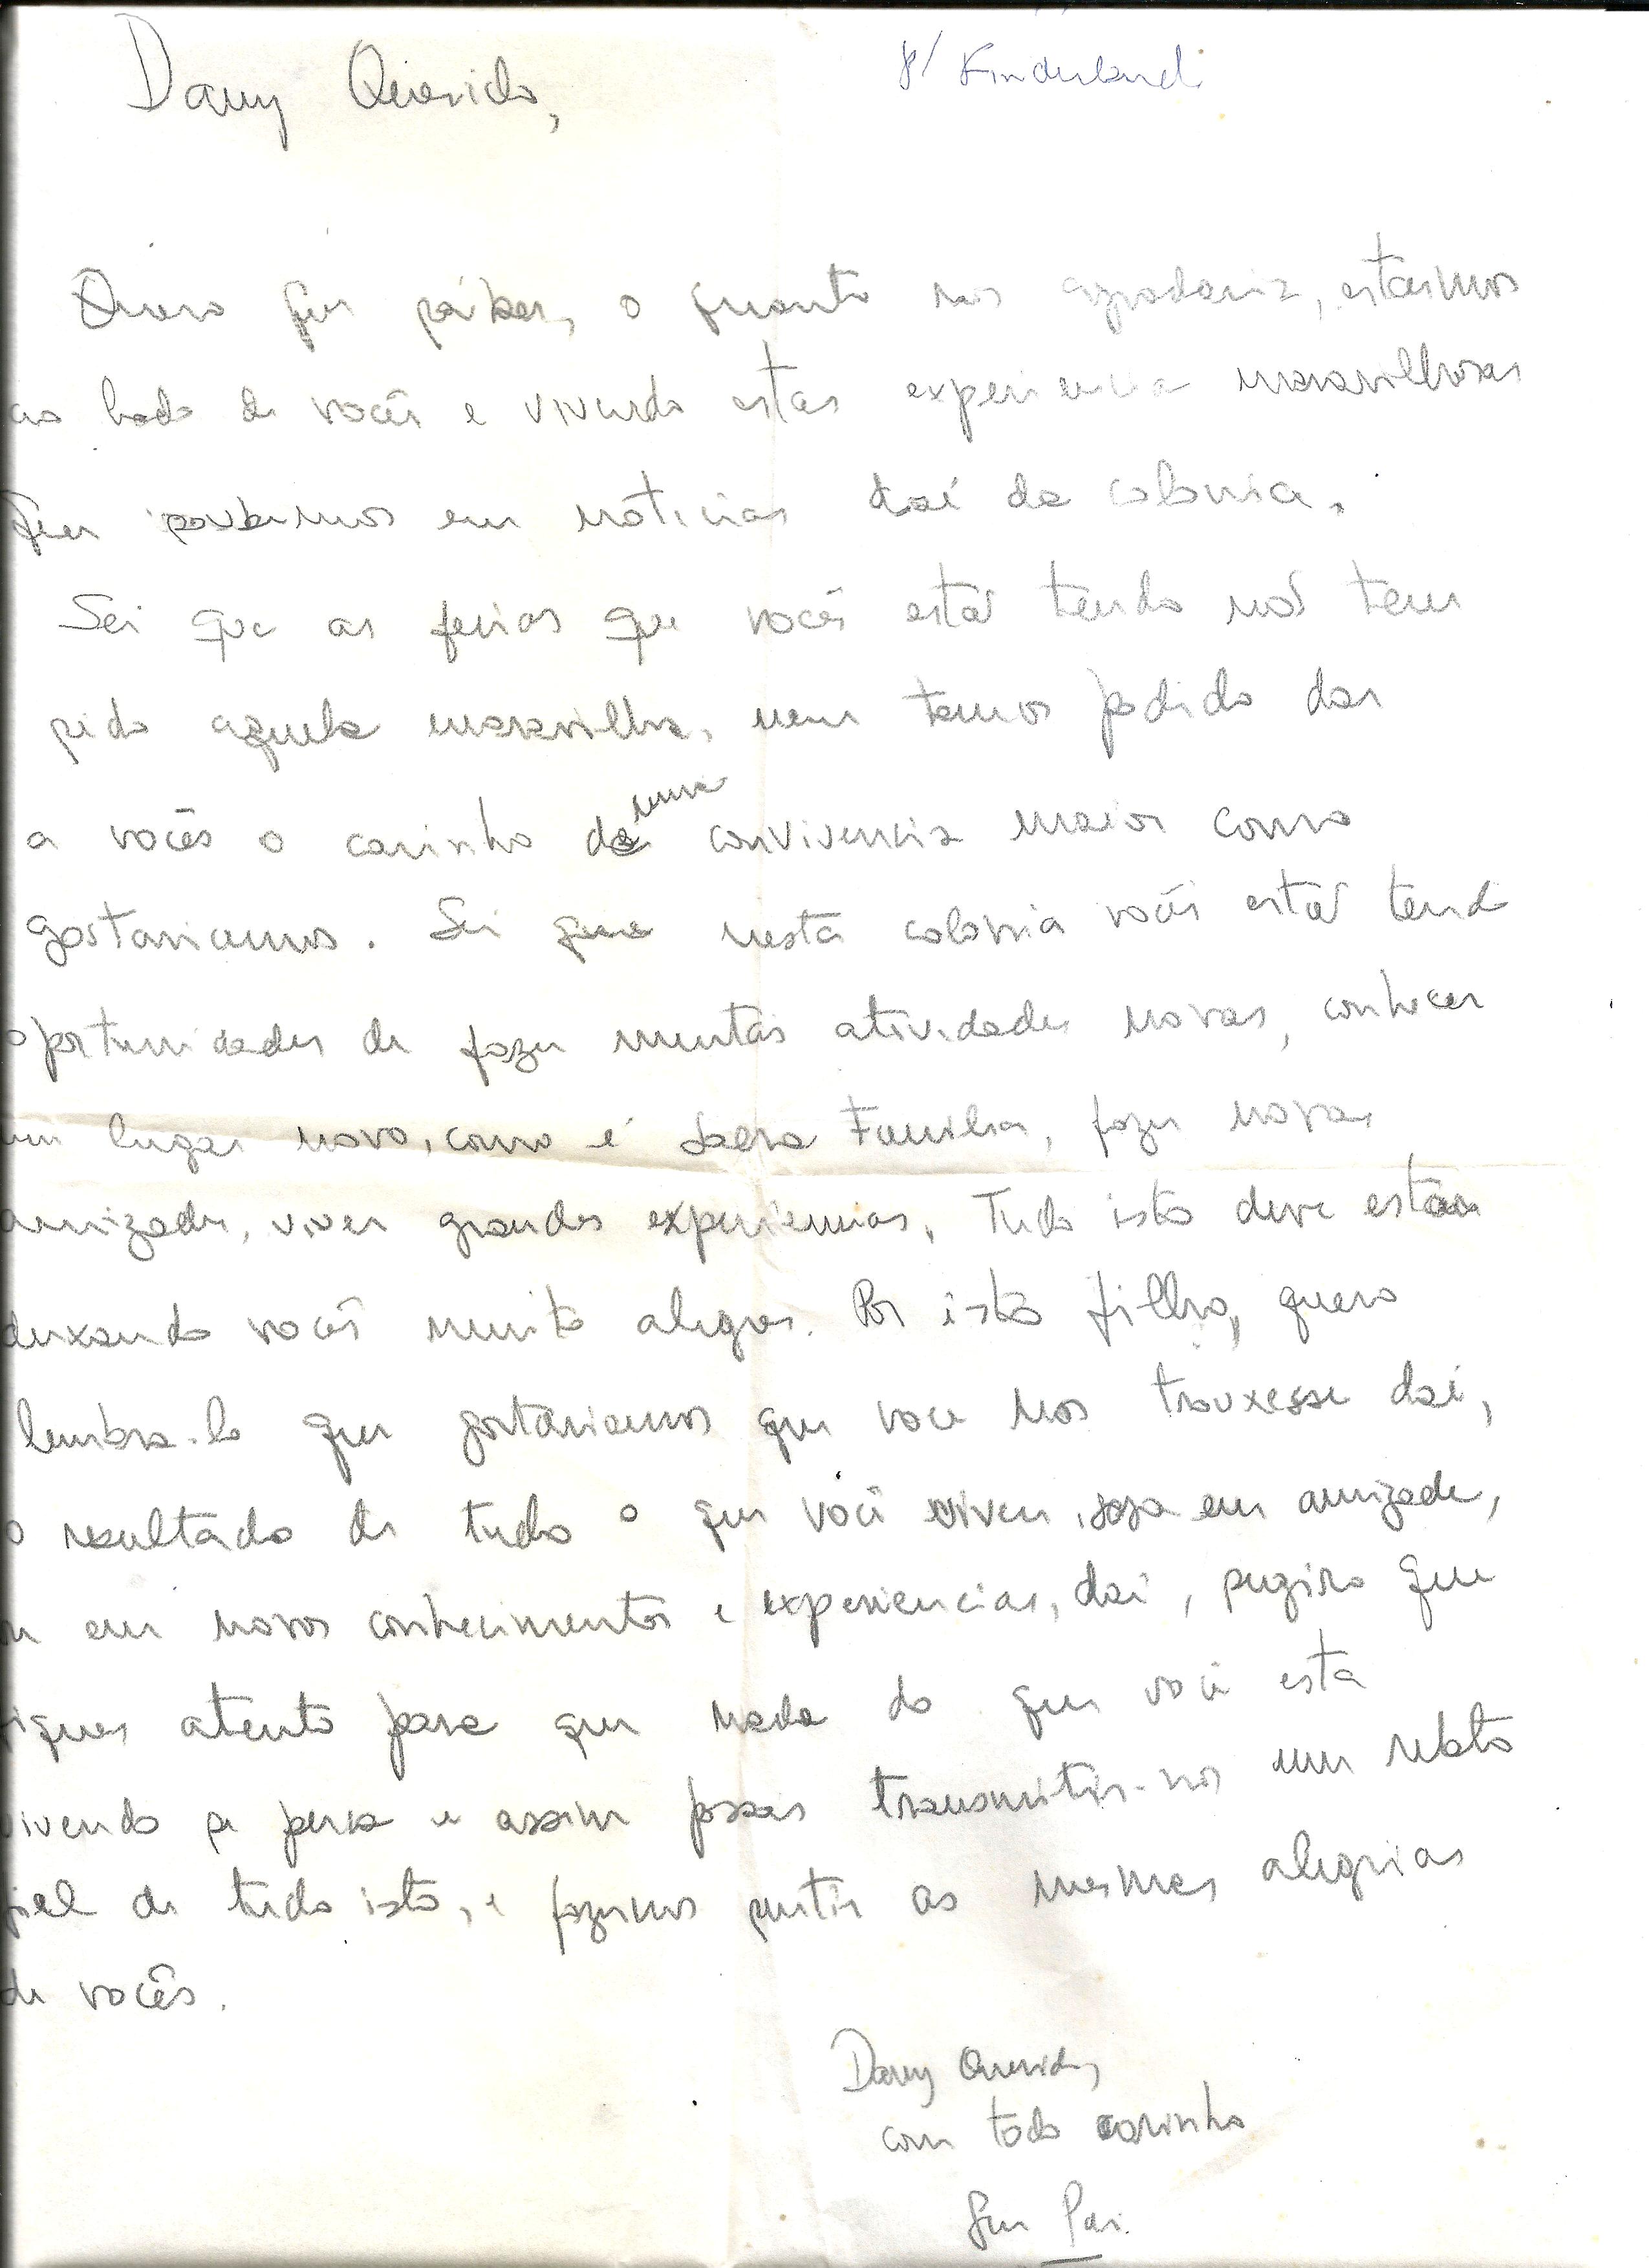 Dany Querido,
p/ Kinderland
Quero que saibas, o quanto nos agradaria, estarmos
ao lado de vocês e vivendo estas experiencia maravilhosas
que soubemos em noticias daí da colonia.
Sei que as ferias que vocês estão tendo não tem
sido aquela maravilha, nem temos podido dar
a vocês o carinho de uma convivencia maior como
gostariamos. Sei que nesta colonia vocês estão tendo
oportunidades de fazer muitas atividades novas, conhecer
um lugar novo, como é Sacra Familia, fazer novas
amizades, viver grandes experiencias. Tudo isto deve estar
deixando vocês muito alegres. Por isto filho, quero
lembra-lo que gostariamos que voce nos trouxesse daí,
o resultado de tudo o que você viveu, seja em amizade,
ou em novos conhecimentos e experiencias, daí, sugiro que
fiques atento para que nada do que você esta
vivendo se perca e assim possas transmitir-nos um relato
fiel de tudo isto, e fazermos sentir as mesmas alegrias
de vocês.
Dany Querido,
com todo carinho
Seu Pai.